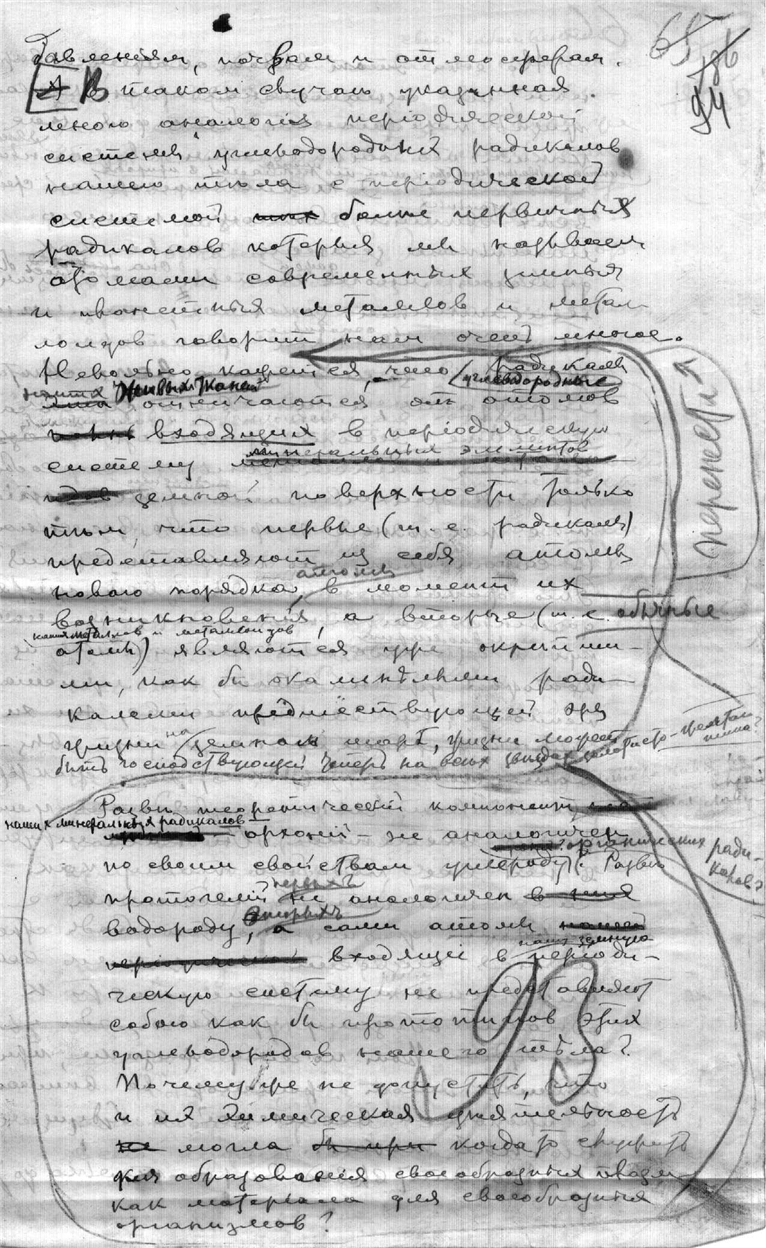 давленіям, почвам и атмосферам.
В таком случаѣ указанная
мною аналогія періодической
системы углеводородных радикалов
нашего тѣла с періодической
системой более первичных
радикалов которыя мы называем
атомами современных
и металлов и метал-
лоидов говорит нам очень многое.
Невольно кажется, что радикалы
углеводородные
наших живых тканей
отличаются от атомов
входящих в періодическую
систему минеральных элементов
земной поверхности только
тѣм, что первые (т. е. радикалы)
представляют из себя атомы
новаго порядка, атомы в момент их
возникновенія а вторые (т. е. обычные
наших металлов и металлоидов
атомы) являются уже
ми, как бы окаменѣлыми ради-
калами предшествующей эры
жизни на земном шарѣ, жизни может
быть господствующей теперь на всѣх звездах
перенести
Развѣ теоретический компонент
наших минеральных радикалов
архоній - не аналогичен
органических ради-
калов?
по своим свойствам углероду Развѣ
протогелий не аналогичен
первыхъ
водороду, а сами атомы
вторыхъ
входящіе в нашу земную періоди-
ческую систему не представляют
собою как бы прототипов этих
углеводородов нашего тѣла?
Почему же не допустить, что
и их химическая дѣятельность
могла когда то служить
для образованія своеобразных
как матеріала для своеобразных
организмов?
93
94